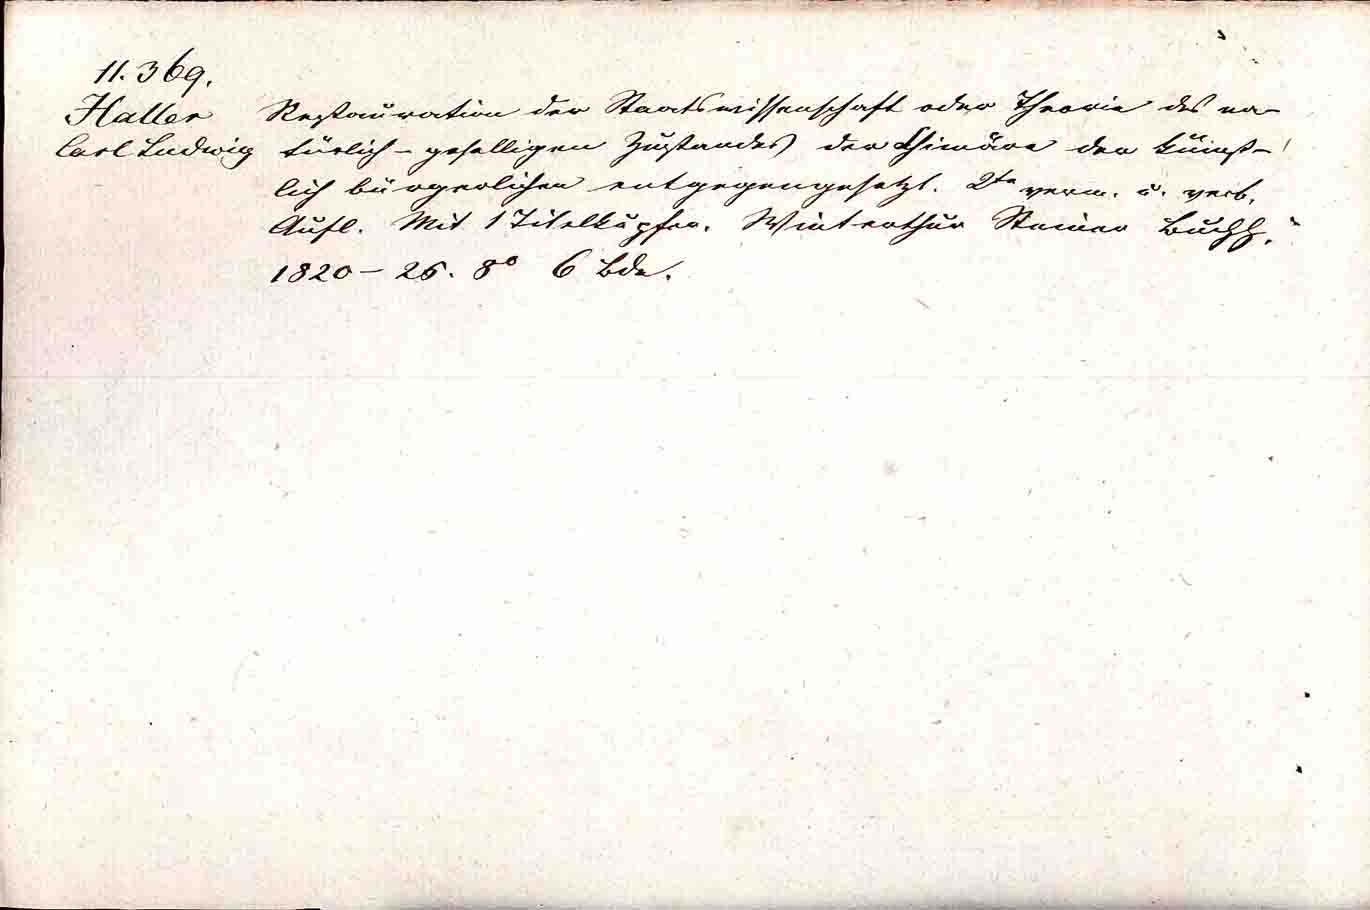 11.369.
Haller Restauration der Staatswissenschaft oder Theorie des na-
Carl Ludwig türlich-geselligen Zustandes der Chimäre des künst-
lich bürgerlichen entgegengesetzt. 2te verm. u. verb.
Aufl. Mit 1 Titelkupfer. Winterthur Steiner Buchh.
1820-26. 8° 6 Bde.